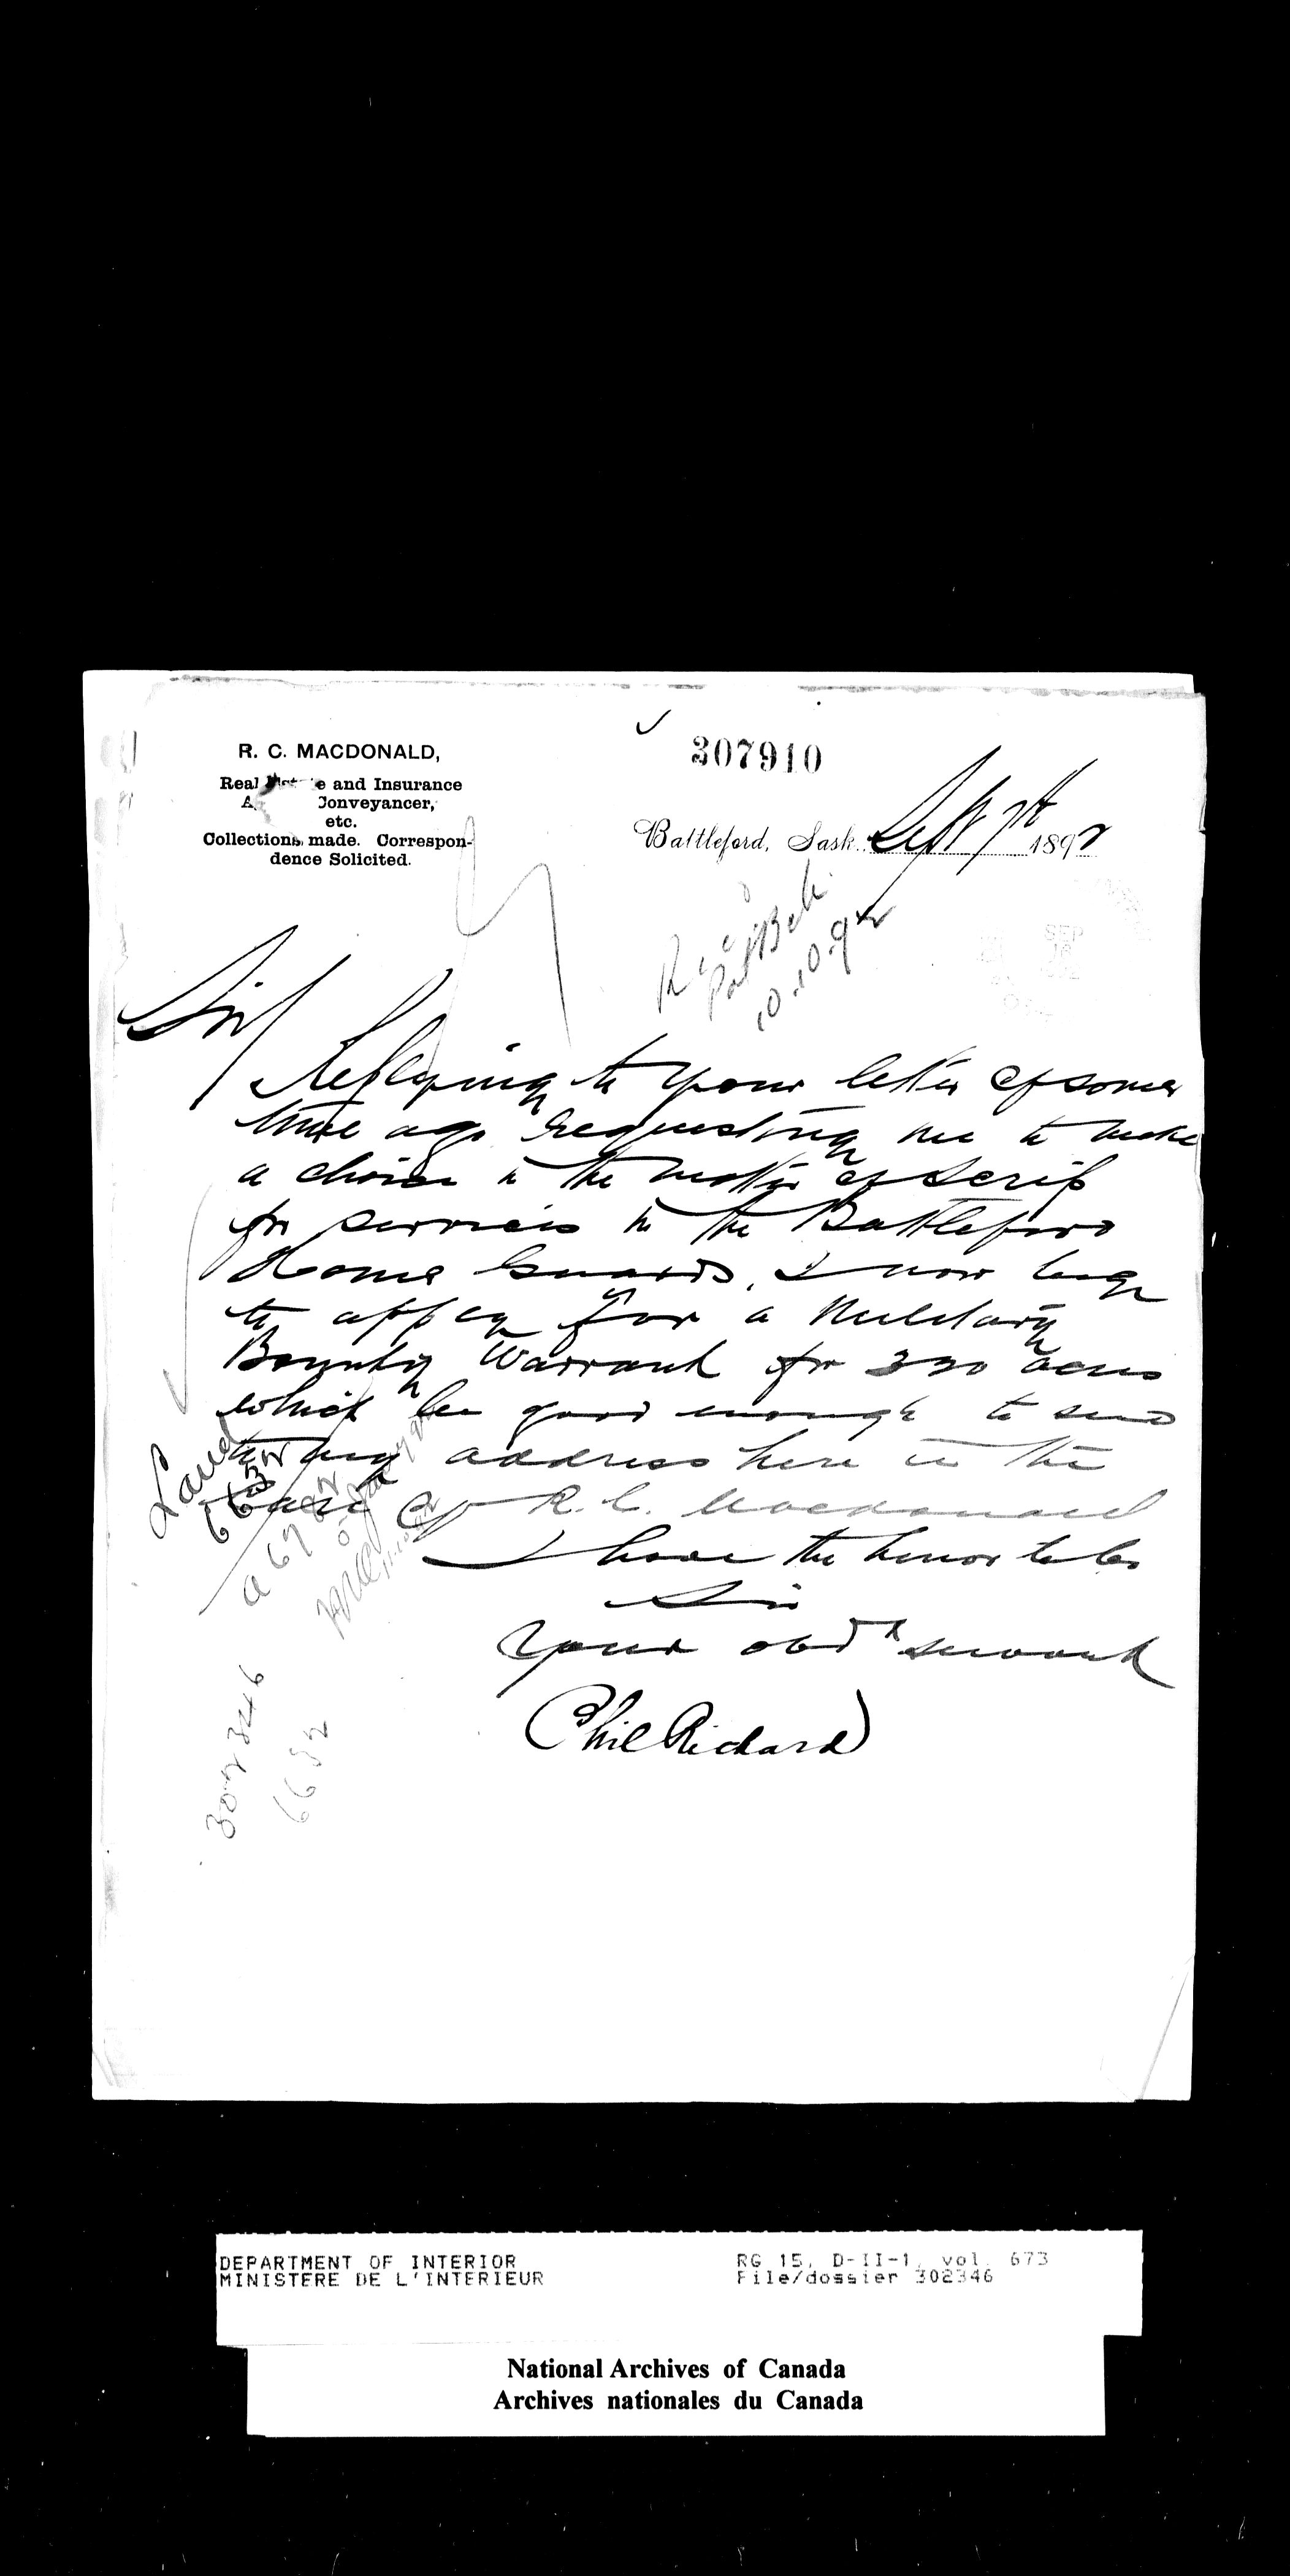 R. C. MACDONALD,
Real Estate and Insurance
Conveyancer,
etc.
Collections made. Correspon-
dence Solicited.
307910
Battleford, Sask. Sept 7th 1892
Recd
10.10.92
SEP
Sir
Replying to your letter of some
time ago requesting me to make
a choice in the matter of Scrip
for services in the Battleford
Home Guards, I now beg
to apply for a Military
Bounty Warrant for 320 acres
which be good enough to send
to my address here in the
care of R. C. Macdonald
I have the honor to be
Sir
Your obdt servant
Phil Richard
Land
6632
302346
6632
DEPARTMENT OF INTERIOR
MINISTERE DE L'INTERIEUR
RG 15, D-II-1, vol. 673
File/dossier 302346
National Archives of Canada
Archives nationales du Canada